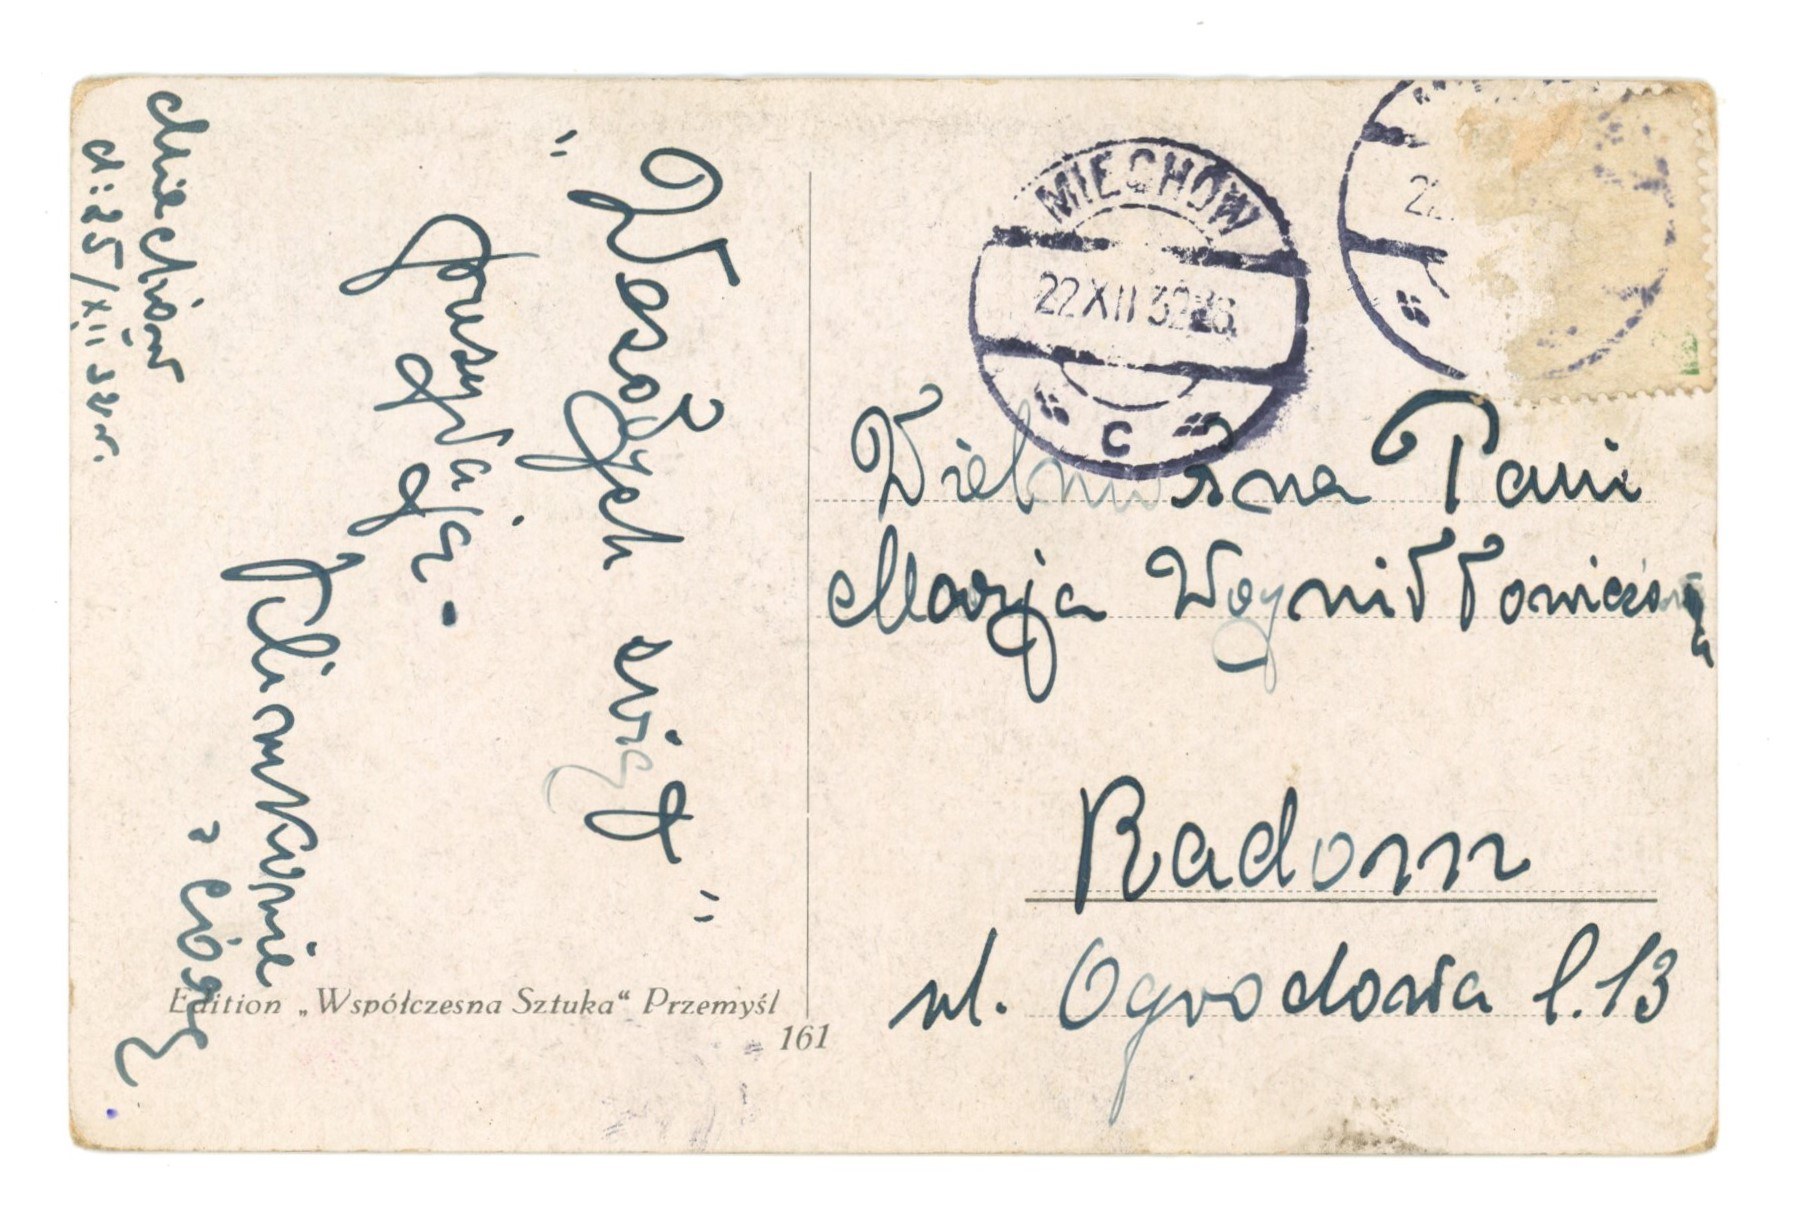 Miechów
d: 25/XII 32 r.
"Wesołych świąt"
przesyłają
z córką
Edition „Współczesna Sztuka“ Przemyśl
161
MIECHÓW
22 XII 32
C
Wielmożna Pani
Marja
Radom
ul. Ogrodowa l. 13